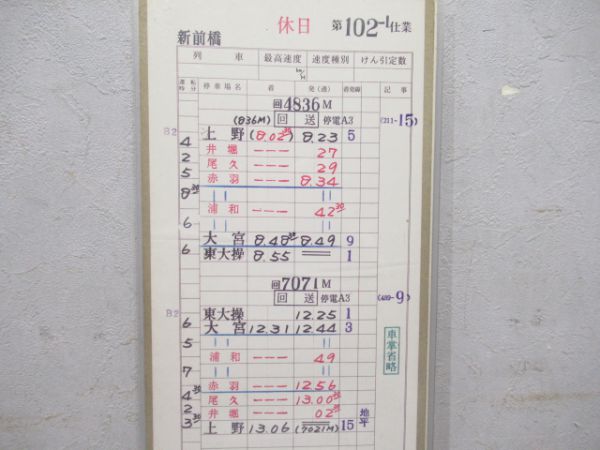 新前橋 休日 第102-1仕業
列車 最高速度 速度種別 けん引定数
km/H
運転時分 停車場名 着 発(通) 着発線 記事
回4836M
(836M) 回送 停電A3 (211-15)
B2 上野 (8.02 35) 8.23 5
4 井堀 --- 27
2 尾久 --- 29
5 赤羽 --- 8.34
8 30 〃 〃
浦和 --- 42 30
6 〃 〃
大宮 8.48 35 8.49 9
6 東大操 8.55 == 1
回7071M
回送 停電A3 (409-9)
B2 東大操 12.25 1
6 大宮 12.31 12.44 3
5 〃 〃 車掌省略
浦和 --- 49
7 〃 〃
赤羽 --- 12.56
4 30 尾久 --- 13.00 30
2 井堀 --- 02 30
3 30 上野 13.06 (7021M) 15 地平